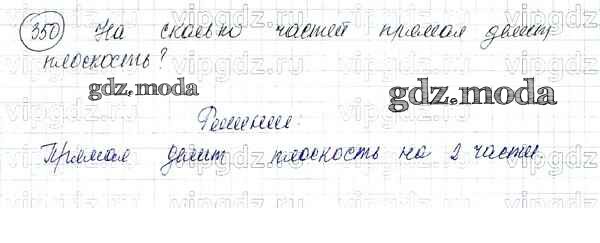 350 На сколько частей прямая делит
плоскость?
gdz.moda
gdz.moda
Решение:
Прямая делит плоскость на 2 части.